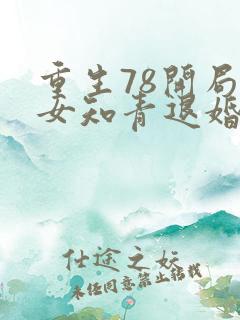 重生78开局
女知青退婚
仕途之妖
未经同意禁止转载